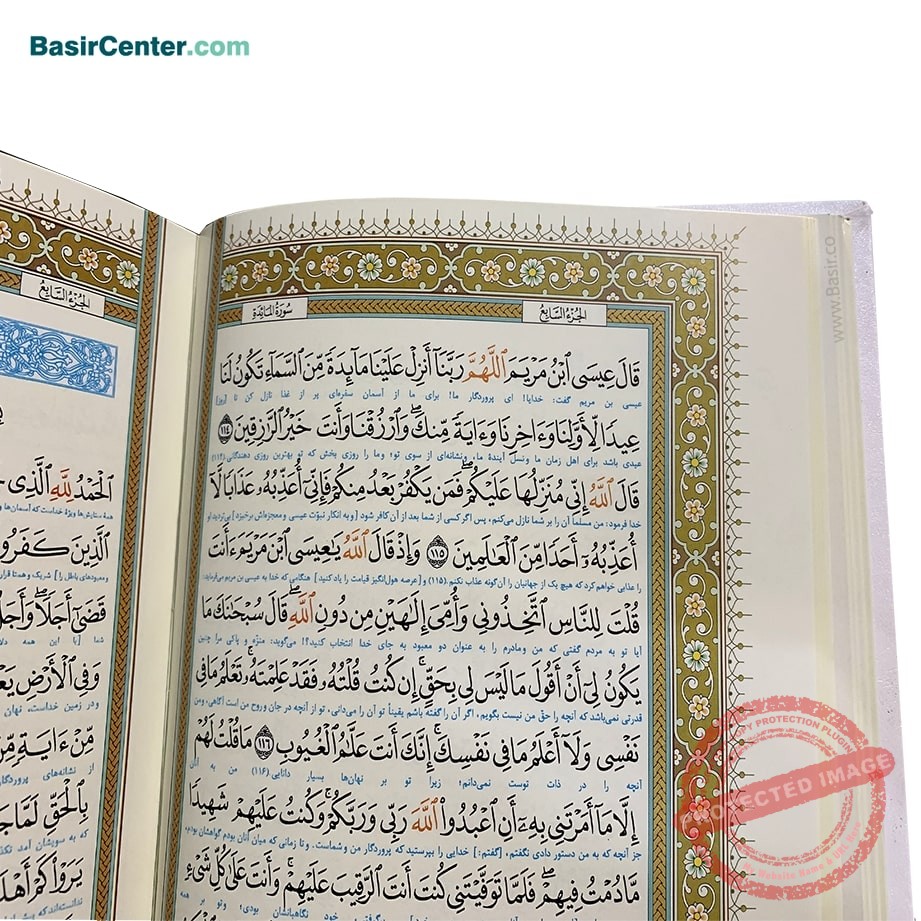 BasirCenter.com
www.Basir.co
الجزء السابع
سورة المائدة
قَالَ عِيسَى ٱبْنُ مَرْيَمَ ٱللَّهُمَّ رَبَّنَآ أَنزِلْ عَلَيْنَا مَآئِدَةً مِّنَ ٱلسَّمَآءِ تَكُونُ لَنَا
عیسی بن مریم گفت: خدایا! ای پروردگار ما! برای ما از آسمان سفره‌ای پر از غذا نازل کن تا [روز]
عِيدًا لِّأَوَّلِنَا وَءَاخِرِنَا وَءَايَةً مِّنكَ ۖ وَٱرْزُقْنَا وَأَنتَ خَيْرُ ٱلرَّٰزِقِينَ ١١٤
عیدی باشد برای اهل زمان ما و نسل آیندهٔ ما، و نشانه‌ای از سوی تو؛ و ما را روزی بخش که تو بهترین روزی دهندگانی (۱۱۴)
قَالَ ٱللَّهُ إِنِّي مُنَزِّلُهَا عَلَيْكُمْ ۖ فَمَن يَكْفُرْ بَعْدُ مِنكُمْ فَإِنِّيٓ أُعَذِّبُهُۥ عَذَابًا لَّآ
خدا فرمود: من مسلماً آن را بر شما نازل می‌کنم، پس اگر کسی از شما بعد از آن کافر شود [و به انکار نبوّت عیسی و معجزه‌اش برخیزد] بی‌تردید او
أُعَذِّبُهُۥٓ أَحَدًا مِّنَ ٱلْعَٰلَمِينَ ١١٥ وَإِذْ قَالَ ٱللَّهُ يَٰعِيسَى ٱبْنَ مَرْيَمَ ءَأَنتَ
را عذابی خواهم کرد که هیچ یک از جهانیان را آن‌گونه عذاب نکنم. (۱۱۵) و [عرصه هول‌انگیز قیامت را یاد کنید] هنگامی که خدا به عیسی بن مریم می‌فرماید:
قُلْتَ لِلنَّاسِ ٱتَّخِذُونِي وَأُمِّيَ إِلَٰهَيْنِ مِن دُونِ ٱللَّهِ ۖ قَالَ سُبْحَٰنَكَ مَا
آیا تو به مردم گفتی که من و مادرم را به عنوان دو معبود به جای خدا انتخاب کنید؟! می‌گوید: منزّه و پاکی مرا چنین
يَكُونُ لِيٓ أَنْ أَقُولَ مَا لَيْسَ لِي بِحَقٍّ ۚ إِن كُنتُ قُلْتُهُۥ فَقَدْ عَلِمْتَهُۥ ۚ تَعْلَمُ مَا فِي
قدرتی نمی‌باشد که آنچه را حق من نیست بگویم، اگر آن را گفته باشم یقیناً تو آن را می‌دانی، تو از آنچه در جان و روح من است آگاهی، و من
نَفْسِي وَلَآ أَعْلَمُ مَا فِي نَفْسِكَ ۚ إِنَّكَ أَنتَ عَلَّٰمُ ٱلْغُيُوبِ ١١٦ مَا قُلْتُ لَهُمْ
آنچه را در ذات توست نمی‌دانم؛ زیرا تو بر نهان‌ها بسیار دانایی (۱۱۶) من به آنان
إِلَّا مَآ أَمَرْتَنِي بِهِۦٓ أَنِ ٱعْبُدُوا۟ ٱللَّهَ رَبِّي وَرَبَّكُمْ ۚ وَكُنتُ عَلَيْهِمْ شَهِيدًا
جز آنچه که به من دستور دادی نگفتم، [گفتم:] خدایی را بپرستید که پروردگار من و شماست. و تا زمانی که میان آنان بودم گواهشان بودم،
مَّا دُمْتُ فِيهِمْ ۖ فَلَمَّا تَوَفَّيْتَنِي كُنتَ أَنتَ ٱلرَّقِيبَ عَلَيْهِمْ ۚ وَأَنتَ عَلَىٰ كُلِّ شَيْءٍ
خود نگاهبانشان بودی؛ و تو بر همه
الجزء السابع
ٱلْحَمْدُ لِلَّهِ ٱلَّذِي
همهٔ ستایش‌ها ویژهٔ خداست که آسمان‌ها و
ٱلَّذِينَ كَفَرُوا
قَضَىٰٓ أَجَلًا ۖ وَأَجَلٌ
شما [با این همه
وَفِي ٱلْأَرْضِ
و در زمین خداست، نهان
مِّنْ ءَايَةٍ مِّنْ
از نشانه‌های پروردگار
بِٱلْحَقِّ لَمَّا
که به سویشان آمد
يَرَوْا۟ كَمْ أَهْلَ
PROTECTED IMAGE
COPY PROTECTION PLUGIN
Website Name & URL